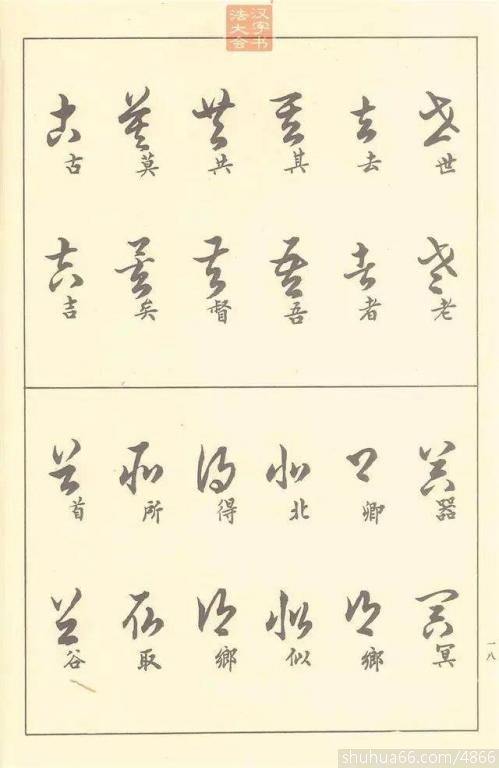 汉字书
法大会
世 去 其 共 莫 古
老 者 吾 督 矣 吉
器 卿 北 得 所 首
冥 鄉 似 鄉 取 谷
一八
shuhua66.com/4866